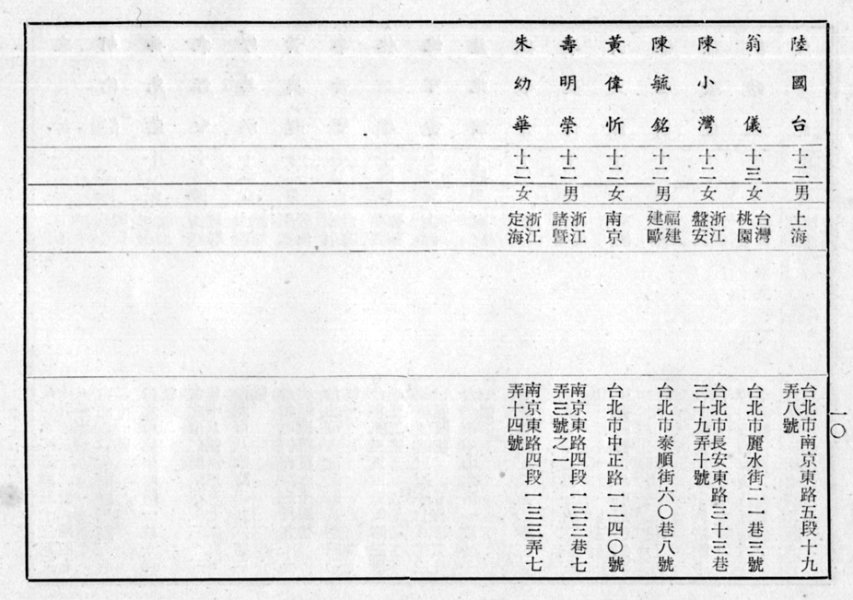 一〇
陸國台
十二
男
上海
台北市南京東路五段十九
弄八號
翁儀
十三
女
台灣
桃園
台北市麗水街二一巷三號
陳小灣
十二
女
浙江
盤安
台北市長安東路三十三巷
三十九弄十號
陳毓銘
十二
男
福建
建歐
台北市泰順街六〇巷八號
黃偉忻
十二
女
南京
台北市中正路一二四〇號
壽明榮
十二
男
浙江
諸暨
南京東路四段一三三巷七
弄三號之一
朱幼華
十二
女
浙江
定海
南京東路四段一三三弄七
弄十四號